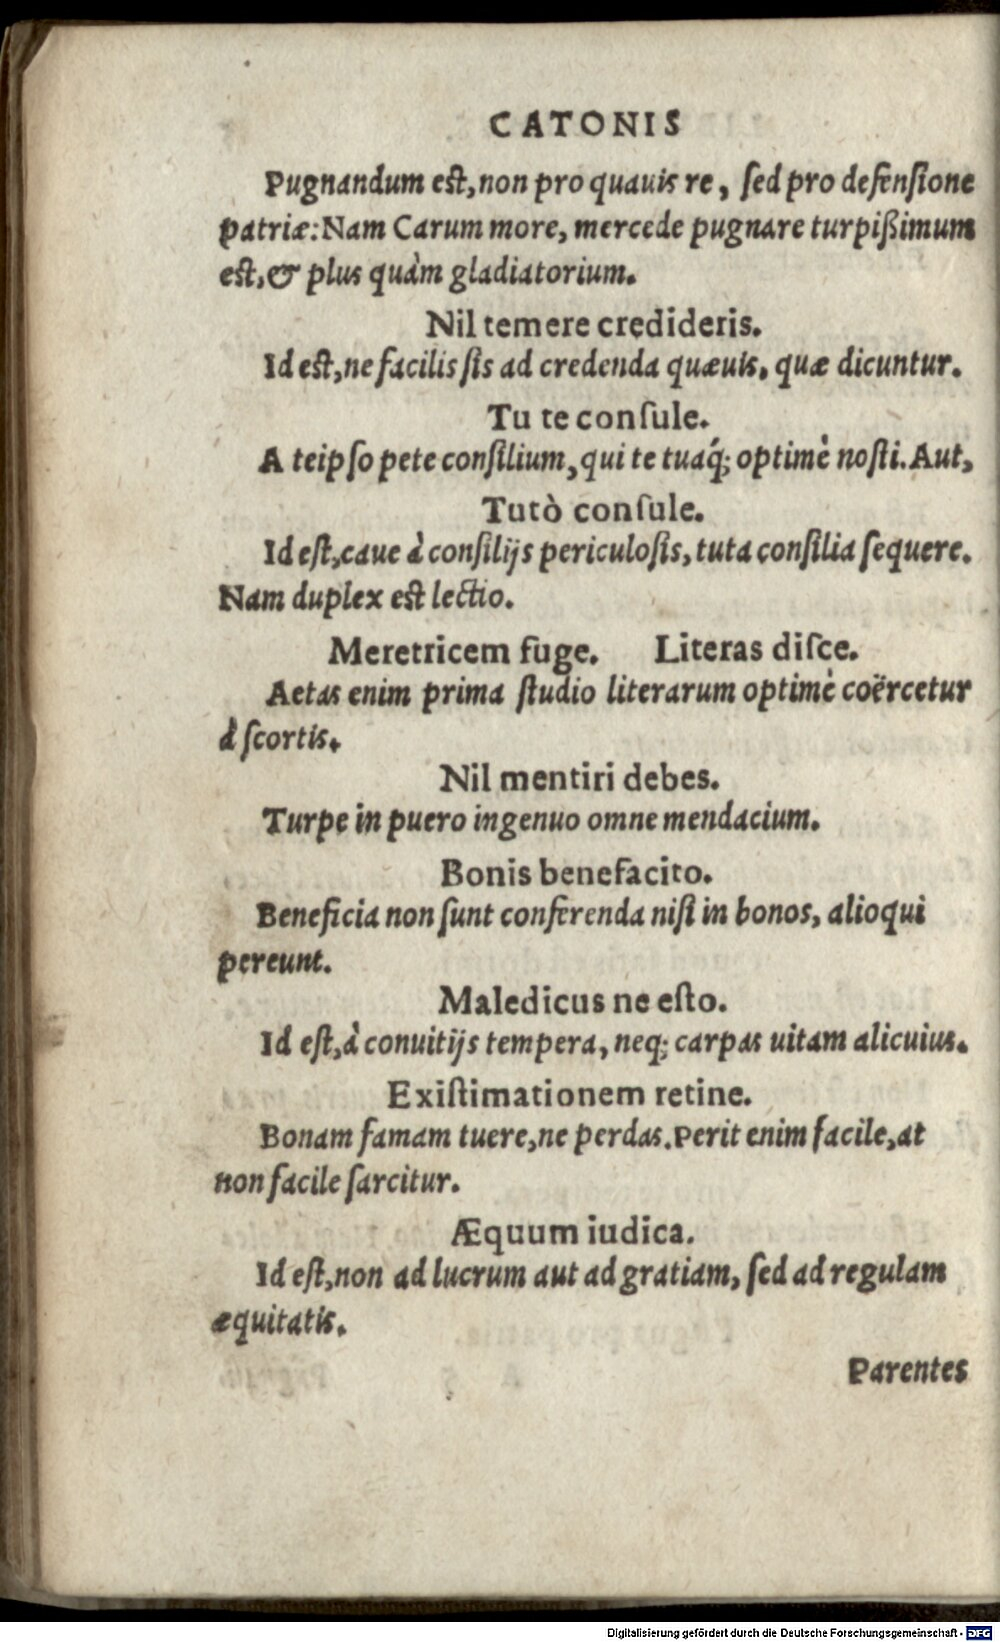 CATONIS
Pugnandum est, non pro quauis re, sed pro defensione
patriæ: Nam Carum more, mercede pugnare turpißimum
est, & plus quàm gladiatorium.
Nil temere credideris.
Id est, ne facilis sis ad credenda quæuis, quæ dicuntur.
Tu te consule.
A teipso pete consilium, qui te tuaq́; optimè nosti. Aut,
Tutò consule.
Id est, caue à consilijs periculosis, tuta consilia sequere.
Nam duplex est lectio.
Meretricem fuge. Literas disce.
Aetas enim prima studio literarum optimè coërcetur
à scortis.
Nil mentiri debes.
Turpe in puero ingenuo omne mendacium.
Bonis benefacito.
Beneficia non sunt conferenda nisi in bonos, alioqui
pereunt.
Maledicus ne esto.
Id est, à conuitijs tempera, neq; carpas uitam alicuius.
Existimationem retine.
Bonam famam tuere, ne perdas. Perit enim facile, at
non facile sarcitur.
Æquum iudica.
Id est, non ad lucrum aut ad gratiam, sed ad regulam
æquitatis.
Parentes
Digitalisierung gefördert durch die Deutsche Forschungsgemeinschaft - DFG